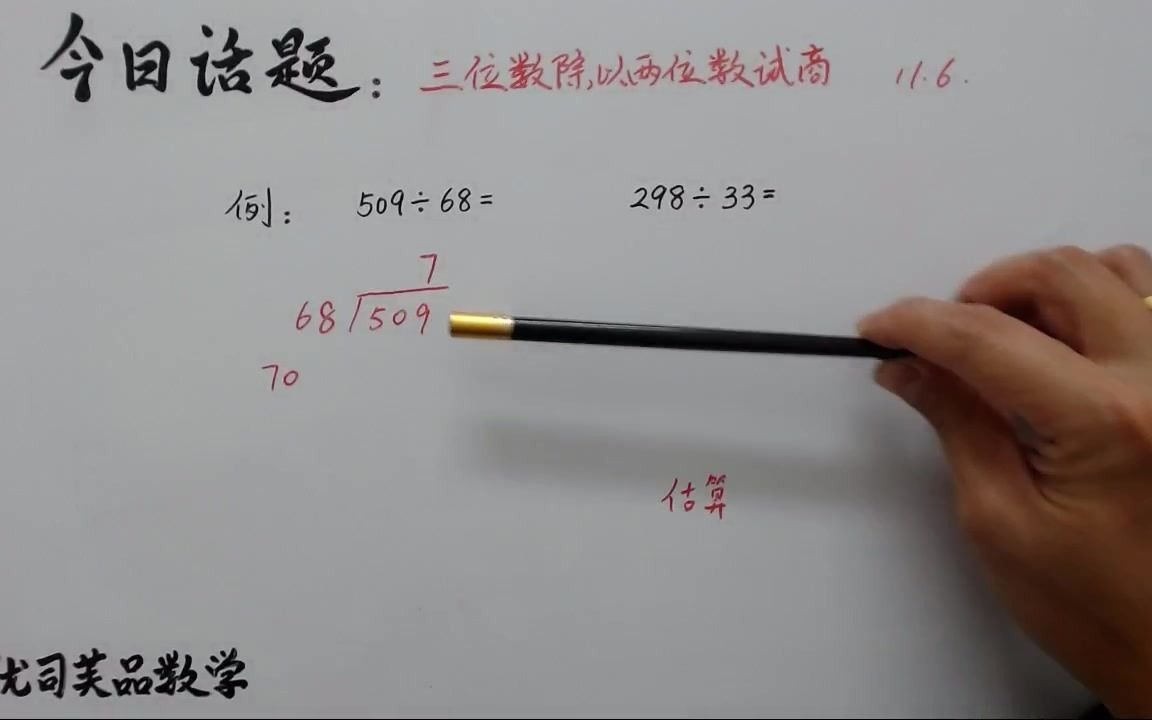 今日话题：三位数除以两位数试商 11.6.
例： 509÷68= 298÷33=
7
68 509
70
估算
优司芙品数学